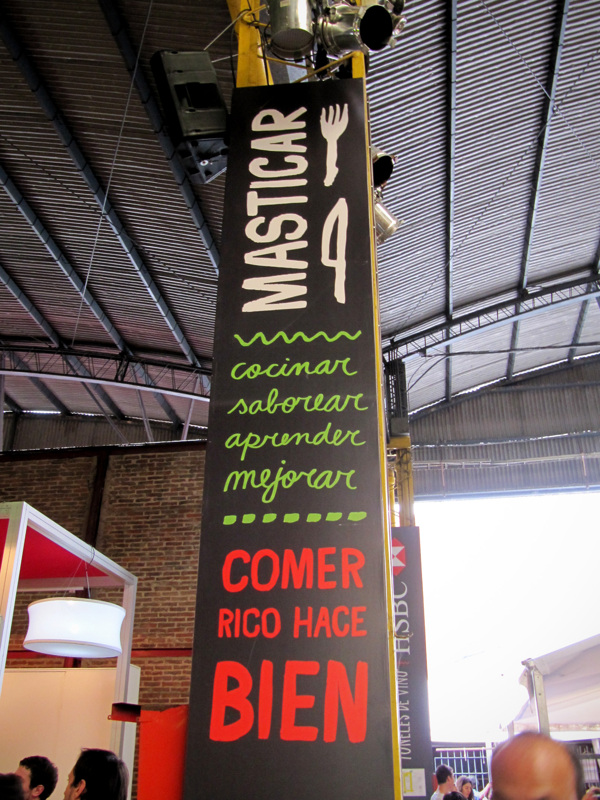 MASTICAR
cocinar
saborear
aprender
mejorar
COMER
RICO HACE
BIEN
HSBC
TONELES DE VINO